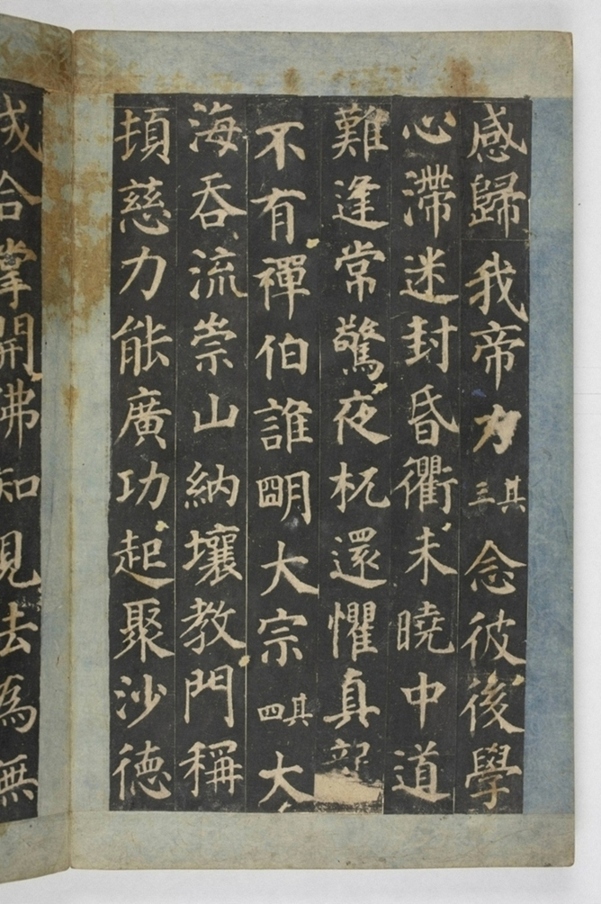 感歸我帝力其三念彼後學
心滯迷封昏衢未曉中道
難逢常驚夜杌還懼真
不有禪伯誰明大宗其四大
海吞流崇山納壤教門稱
頓慈力能廣功起聚沙德
成合掌開佛知見法為無